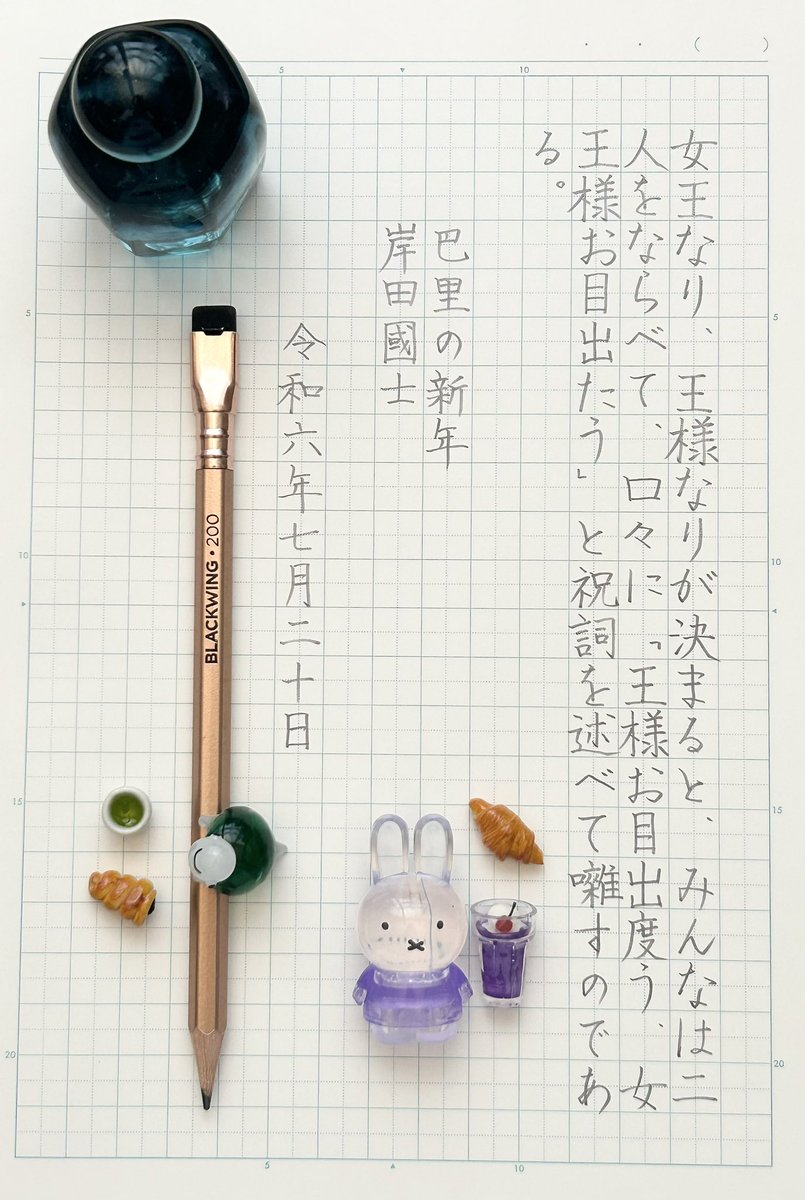 5 10
( )
女王なり、王様なりが決まると、みんなは二
人をならべて、口々に「王様お目出度う、女
王様お目出たう」と祝詞を述べて囃すのであ
る。
巴里の新年
岸田國士
令和六年七月二十日
BLACKWING • 200
5
10
15
20
5
10
15
20
5 10